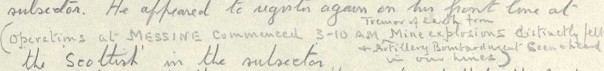 subsector. He appeared to register again on his front line at
Tremor of earth from
(Operations at MESSINE Commenced 3-10 AM Mine explosions distinctly felt
+ Artillery Bombardment Seen + heard
the Scottish in the subsector in our lines)